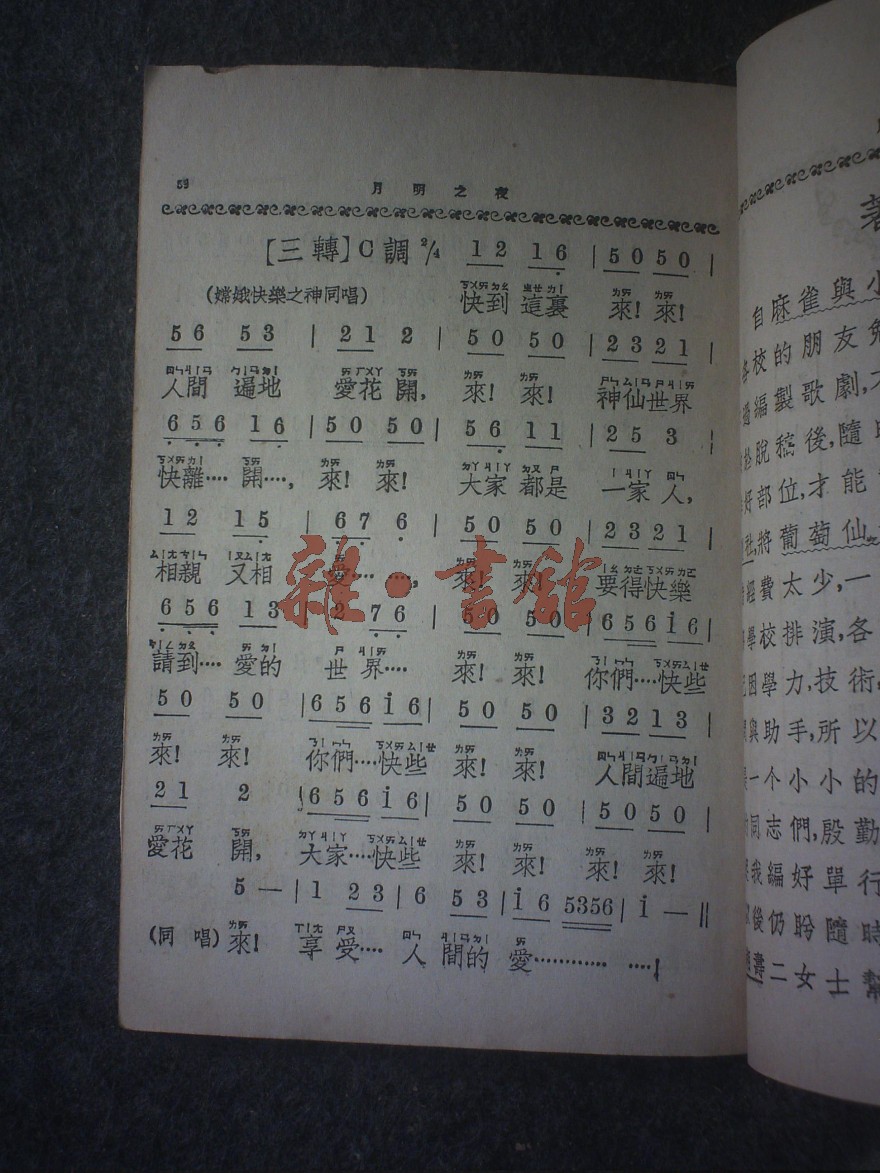 59
月明之夜
[三轉]C調 2/4 1 2 1 6 | 5 0 5 0 |
(嫦娥快樂之神同唱) 快到這裏 來! 來!
5 6 5 3 | 2 1 2 | 5 0 5 0 | 2 3 2 1 |
人間遍地 愛花開, 來! 來! 神仙世界
6 5 6 1 6 | 5 0 5 0 | 5 6 1 1 | 2 5 3 |
快離‥‥開‥‥, 來! 來! 大家都是 一家人,
1 2 1 5 | 6 7 6 | 5 0 5 0 | 2 3 2 1 |
相親又相 愛‥‥‥, 來! 來! 要得快樂
6 5 6 1 3 | 2 7 6 | 5 0 5 0 | 6 5 6 i 6 |
請到‥‥愛的 世界‥‥ 來! 來! 你們‥‥快些
5 0 5 0 | 6 5 6 i 6 | 5 0 5 0 | 3 2 1 3 |
來! 來! 你們‥‥快些 來! 來! 人間遍地
2 1 2 | 6 5 6 i 6 | 5 0 5 0 | 5 0 5 0 |
愛花開, 大家‥‥快些 來! 來! 來! 來!
5 — | 1 2 3 | 6 5 3 | i 6 5356 | i — ||
(同唱)來! 享受‥‥ 人間的 愛‥‥‥‥‥‥ ‥‥!
雜·書館
自麻雀與小
校的朋友
編製歌劇,
脫稿後,隨
好部位,才能
社,將葡萄仙
經費太少,一
學校排演,各
困學力,技術,
與助手,所以
一个小小的
同志們,殷勤
我編好單行
後仍盼隨時
壽二女士幫